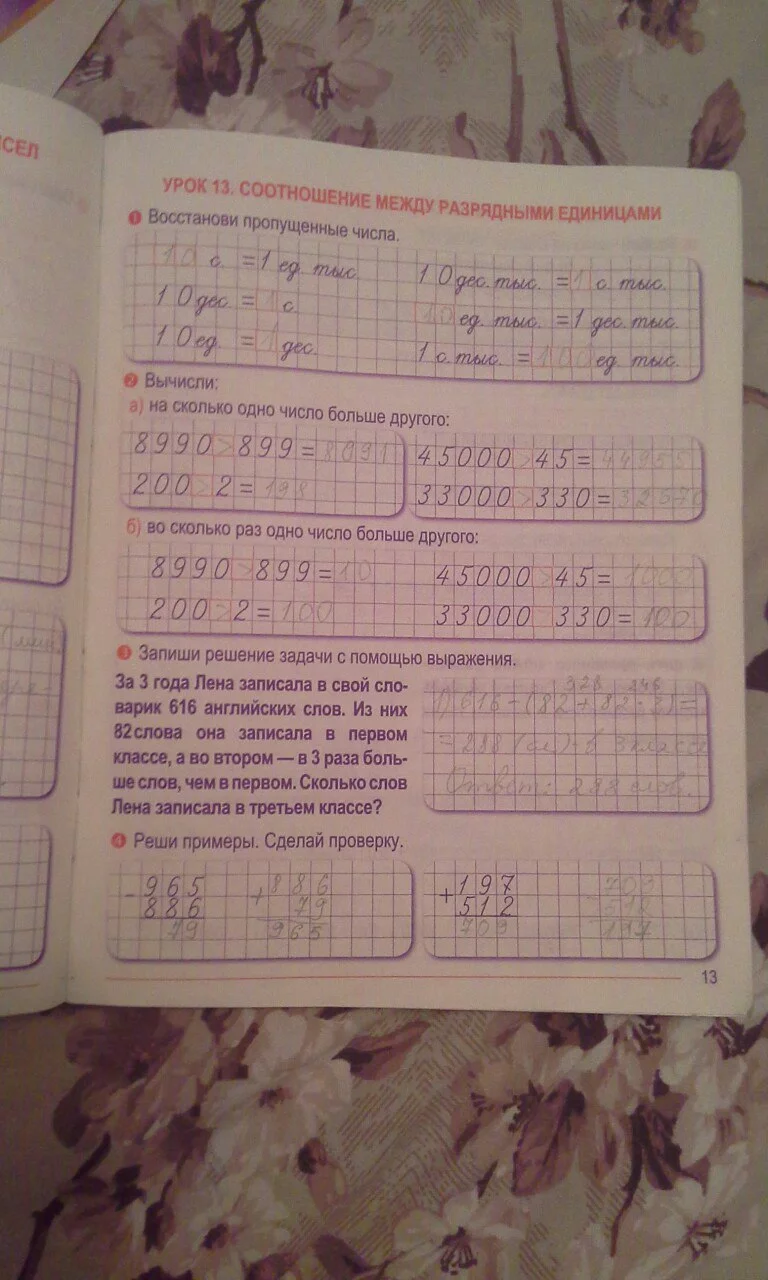 СЕЛ
УРОК 13. СООТНОШЕНИЕ МЕЖДУ РАЗРЯДНЫМИ ЕДИНИЦАМИ
1 Восстанови пропущенные числа.
10 с. = 1 ед. тыс.
10 дес. = 1 с.
10 ед. = 1 дес.
10 дес. тыс. = 1 с. тыс.
10 ед. тыс. = 1 дес. тыс.
1 с. тыс. = 100 ед. тыс.
2 Вычисли:
а) на сколько одно число больше другого:
8990 > 899 = 8091
200 > 2 = 198
45000 > 45 = 44955
33000 > 330 = 32670
б) во сколько раз одно число больше другого:
8990 > 899 = 10
200 > 2 = 100
45000 > 45 = 1000
33000 > 330 = 100
3 Запиши решение задачи с помощью выражения.
За 3 года Лена записала в свой сло-
варик 616 английских слов. Из них
82 слова она записала в первом
классе, а во втором — в 3 раза боль-
ше слов, чем в первом. Сколько слов
Лена записала в третьем классе?
328 246
1) 616 - (82 + 82 · 3) =
= 288 (сл) - в 3 классе
Ответ: 288 слов.
4 Реши примеры. Сделай проверку.
- 965
886
79
+ 886
79
965
+ 197
512
709
512
197
13